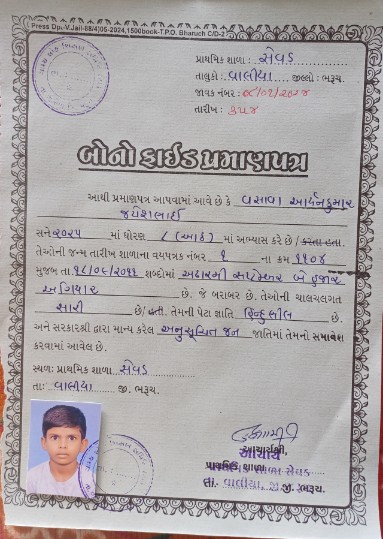 Press Dpt-V.Jail-88/4)05-2024,1500book-T.P.O. Bharuch C/D-2
પ્રાથમિક શાળા : સેવડ
તાલુકો : વાલીયા જીલ્લો : ભરૂચ.
જાવક નંબર :
તારીખ :
બોનોફાઈડ પ્રમાણપત્ર
આથી પ્રમાણપત્ર આપવામાં આવે છે કે વસાવા આર્યનકુમાર
જયેશભાઈ
સને ૨૦૨૫ માં ધોરણ ૮ (આઠ) માં અભ્યાસ કરે છે / કરતા હતા.
તેઓની જન્મ તારીખ શાળાના વયપત્રક નંબર ૧ ના ક્રમ ૧૧૦૪
મુજબ તા. ૧૮/૦૯/૨૦૧૧ શબ્દોમાં અઢારમી સપ્ટેમ્બર બે હજાર
અગિયાર છે. જે બરાબર છે. તેઓની ચાલચલગત
સારી છે/ હતી. તેમની પેટા જ્ઞાતિ હિન્દુ ભીલ છે.
અને સરકારશ્રી દ્વારા માન્ય કરેલ અનુસૂચિત જન જાતિમાં તેમનો સમાવેશ
કરવામાં આવેલ છે.
સ્થળ: પ્રાથમિક શાળા સેવડ
તા: વાલીયા જી. ભરૂચ.
આચાર્યશ્રી,
આચાર્ય
પ્રાથમિક શાળા સેવડ
તા. વાલીયા, જી. ભરૂચ.